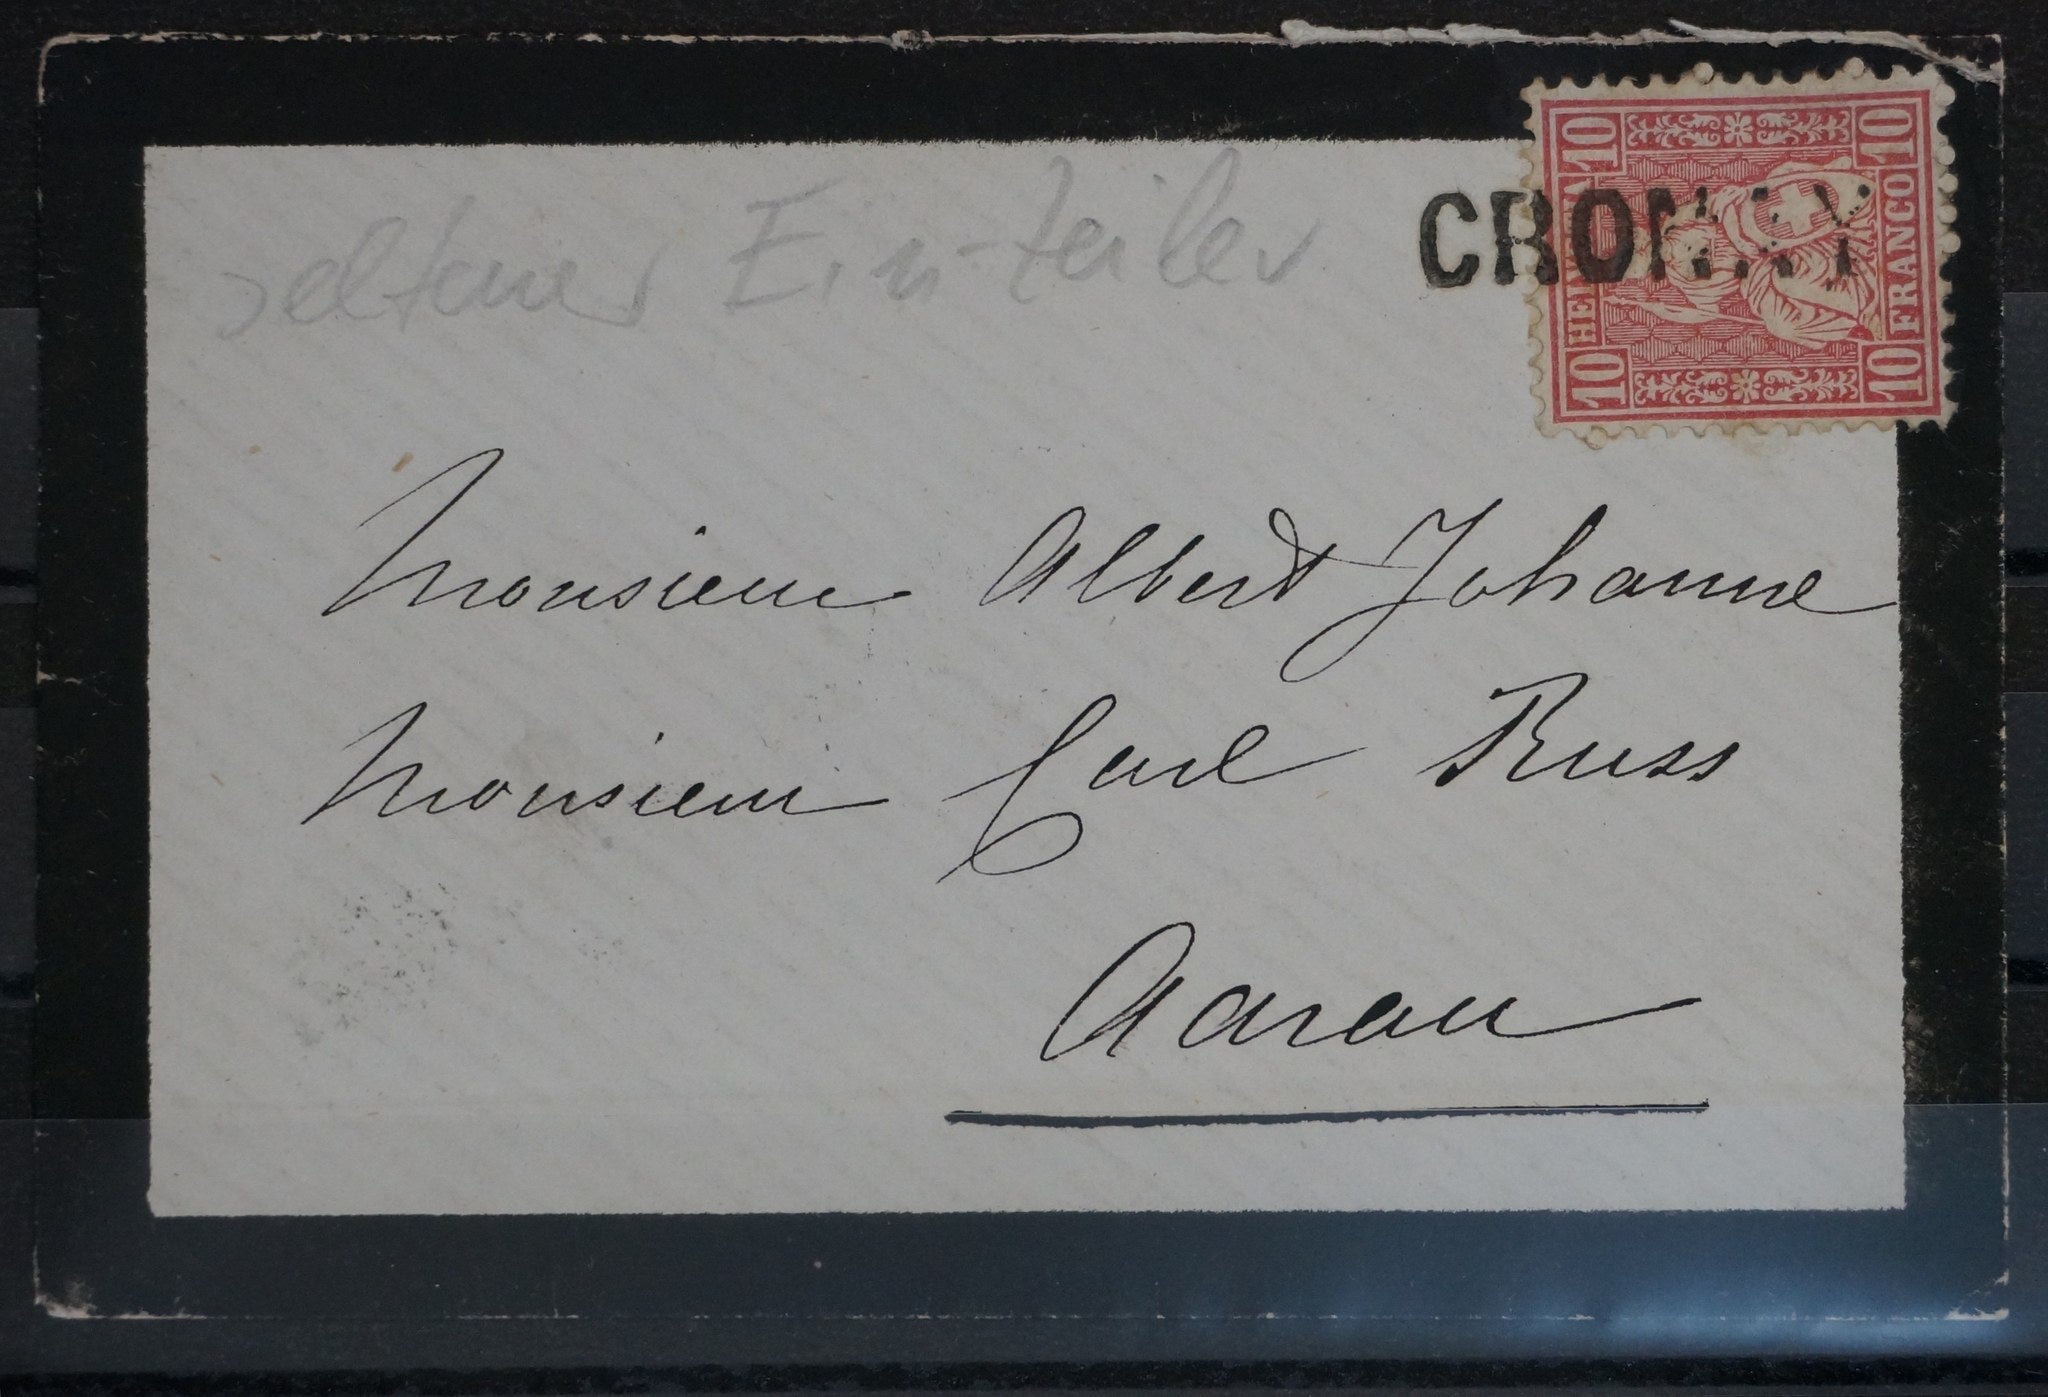 seltener Ein-teiler
CRONAY
10 HELVETIA 10
10 FRANCO 10
Monsieur Albert Johanne
Monsieur Carl Russ
Aarau